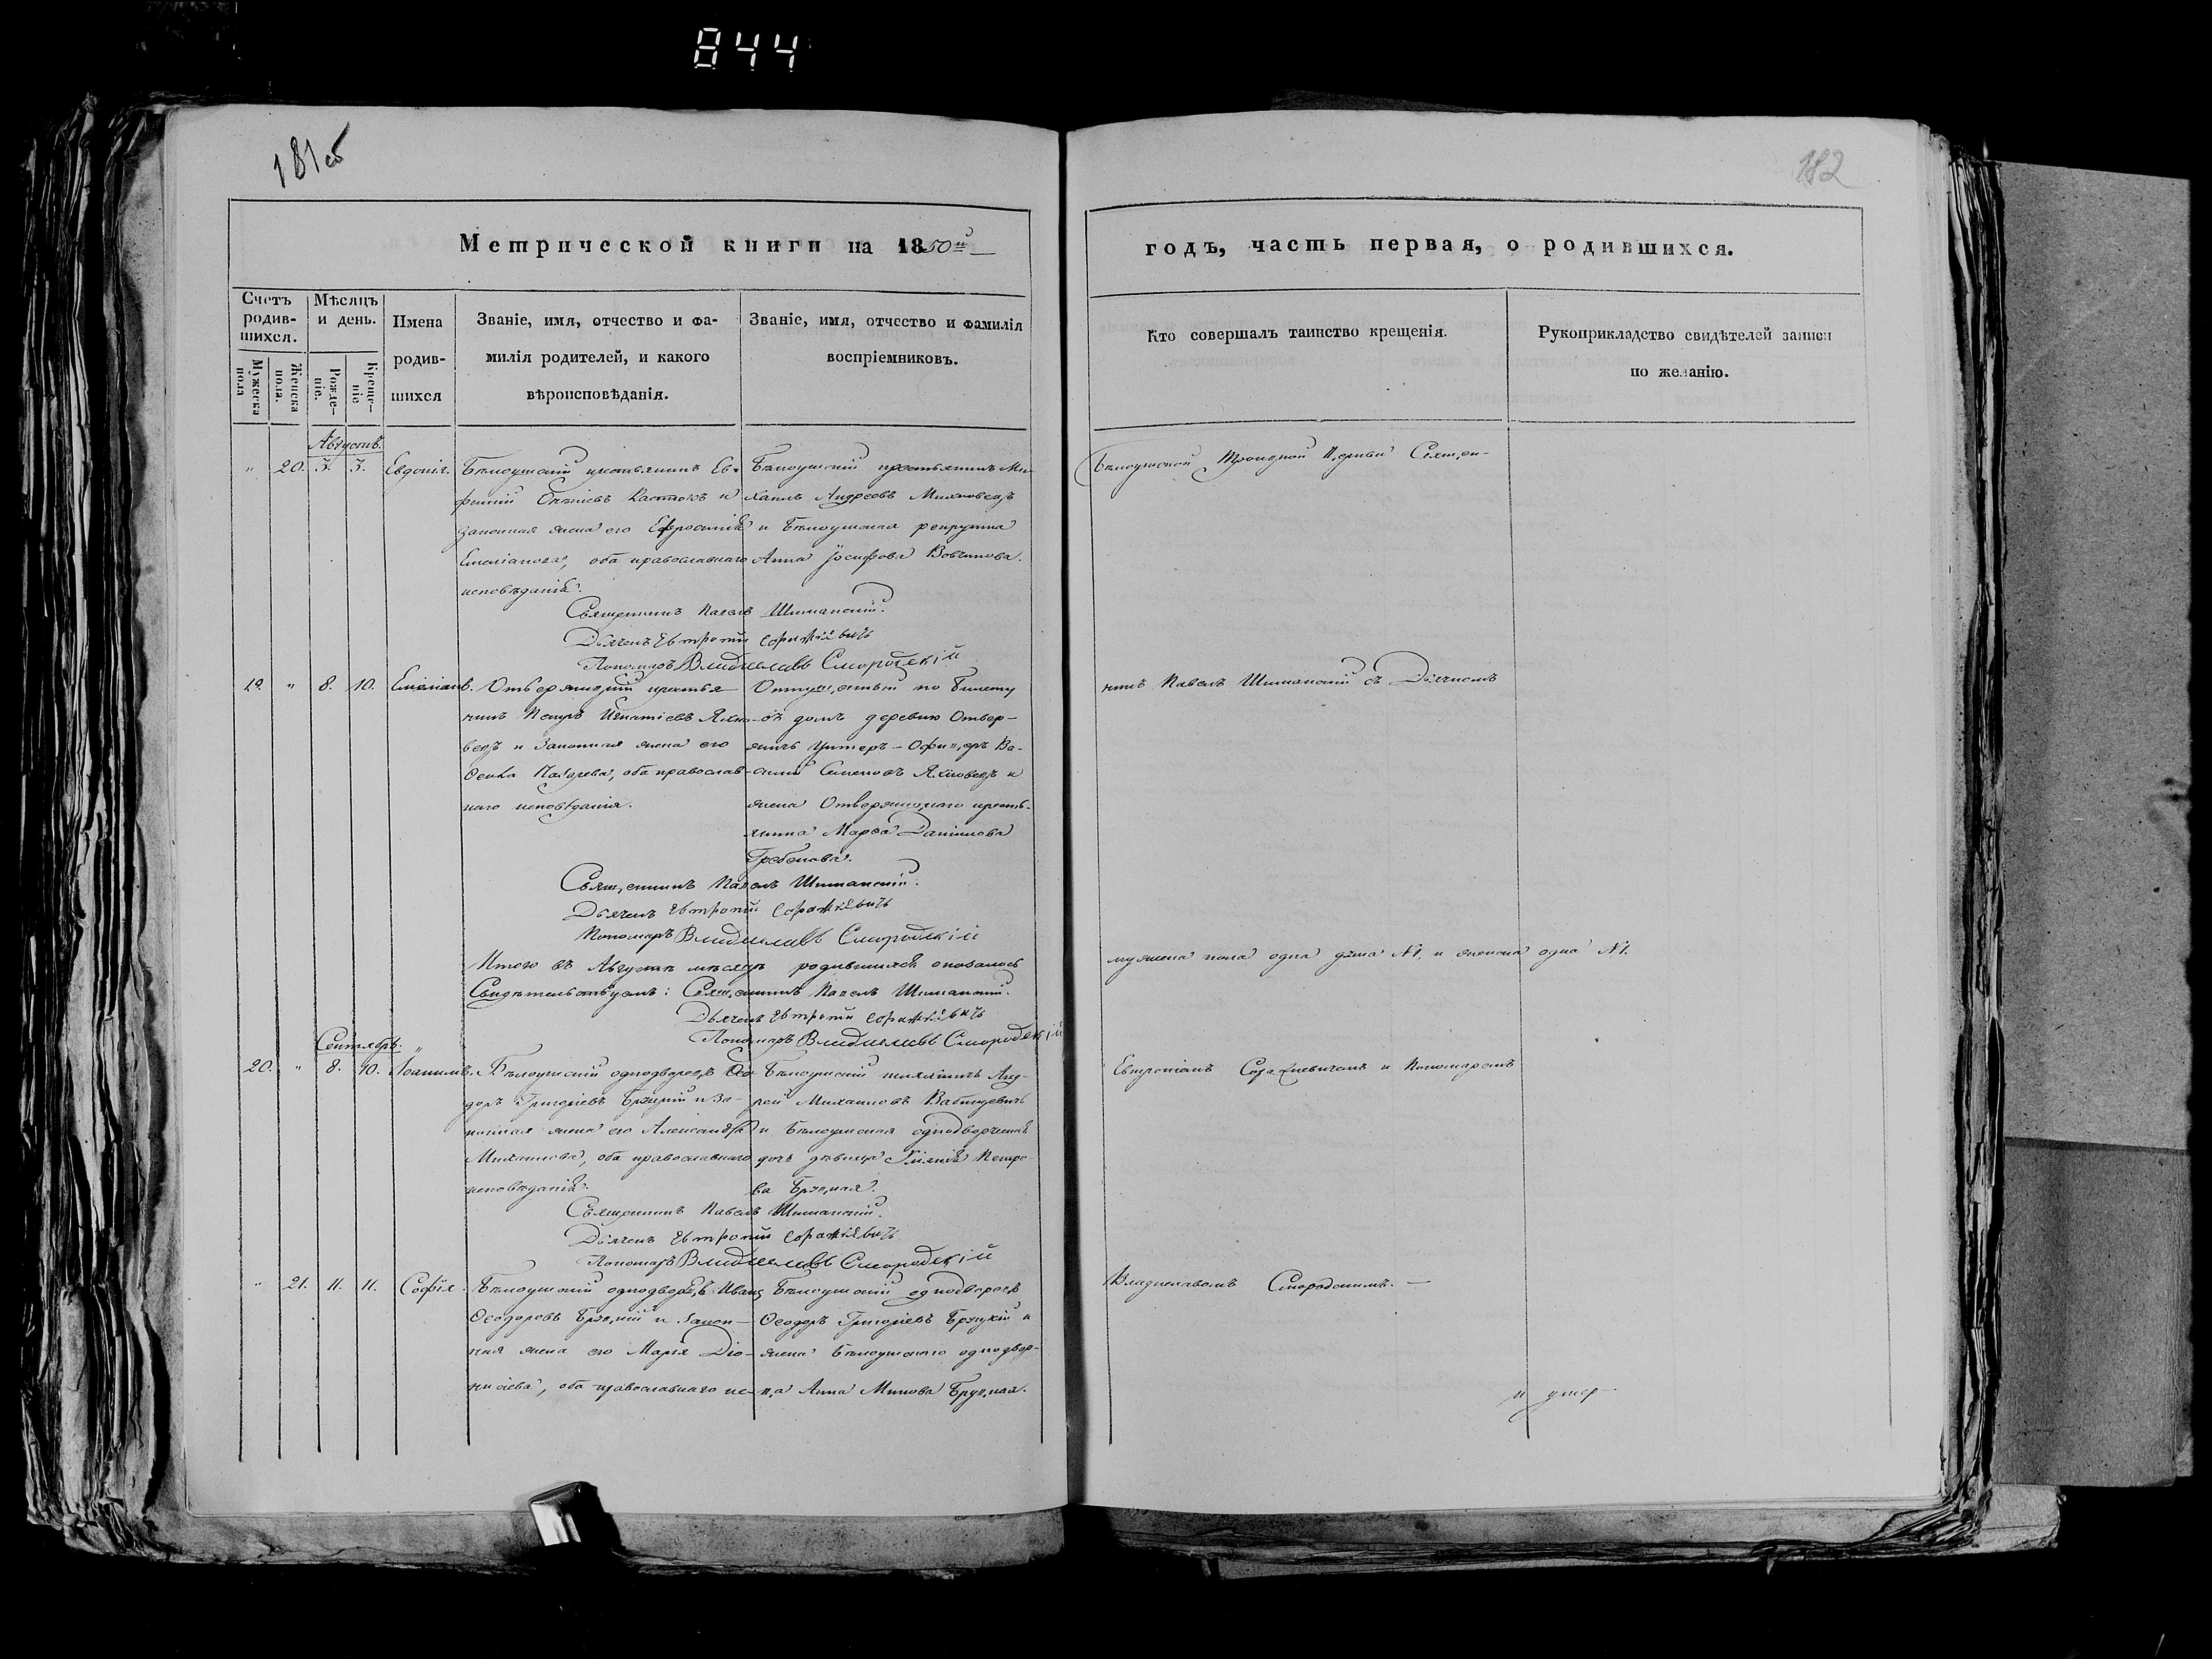 844
181об
182
Метрической книги на 1850й
годъ, часть первая, о родившихся.
Счетъ родившихся.
Мужеска пола
Женска пола.
Мѣсяцъ и день.
Рожденіе.
Крещеніе
Имена родившихся
Званіе, имя, отчество и фамилія родителей, и какого вѣроисповѣданія.
Званіе, имя, отчество и фамилія воспріемниковъ.
Кто совершалъ таинство крещенія.
Рукоприкладство свидѣтелей записи по желанію.
Августъ.
" 20. 3. 3. Евдокія.
законная жена его Ефросинія
Емеліанова, оба православнаго
исповѣданія.
Бѣлоушскій крестьянинъ Ми-
хаилъ Андреевъ
и Бѣлоушская рекрутка
Анна Іосифова
Бѣлоушской Троицкой Церкви Священ-
Священникъ Павелъ Шиманскій.
Дьячекъ Евтропій
Пономарь Владиславъ Смородскій
19. " 8. 10. Емеліанъ.
Отвержицкій крестья-
нинъ Петръ Игнатіевъ Яхно-
вецъ и законная жена его
оба православ-
наго исповѣданія.
Отпущенный по билету
въ домъ деревню Отвер-
жичь Унтеръ-Офицеръ Ва-
силій Семеновъ Яхновецъ и
жена Отвержицкаго кресть-
янина Марѳа Даниилова
Гребенова.
никъ Павелъ Шиманскій съ Дьячкомъ
Священникъ Павелъ Шиманскій.
Дьячекъ Евтропій
Пономарь Владиславъ Смородскій
Итого въ Августѣ мѣсяцѣ родившихся оказалось
мужеска пола одна душа №1. и женска одна №1.
Свидѣтельствуемъ: Священникъ Павелъ Шиманскій.
Дьячекъ Евтропій
Пономарь Владиславъ Смородскій
Сентябрь.
20. " 8. 10. Іоакимъ.
Бѣлоушскій однодворецъ Ѳео-
доръ Григоріевъ Бруцкій и за-
конная жена его Александра
Михаилова, оба православнаго
исповѣданія.
Бѣлоушскій шляхтичъ Анд-
рей Михаиловъ
и Бѣлоушская однодворческая
дочь дѣвица Юліанія Петро-
ва Бруцкая.
Евтропіемъ и Пономаремъ
Священникъ Павелъ Шиманскій.
Дьячекъ Евтропій
Пономарь Владиславъ Смородскій
" 21. 11. 11. Софія.
Бѣлоушскій однодворецъ Иванъ
Ѳеодоровъ Бруцкій и закон-
ная жена его Марія Діо-
нисіева, оба православнаго ис-
Бѣлоушскій однодворецъ
Ѳеодоръ Григоріевъ Бруцкій и
жена Бѣлоушскаго однодвор-
ца Анна Минова Бруцкая.
Владиславомъ Смородскимъ.—